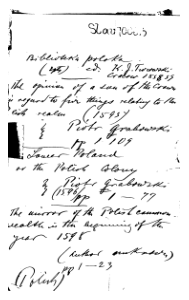 Slav 7002.3
Biblioteka polska
(repr) ed. K.J. Turowski
Cracow 1858-59
the opinion of a son of the Crown
in regard to five things relating to the
realm (1595)
by Piotr Grabowski
pp 1-109
Lower Poland
or the Polish Colony
by Piotr Grabowski
(1596) pp 1-77
The mirror of the Polish common-
wealth in the beginning of the
year 1598
(author unknown)
pp 1-23
(Polish)